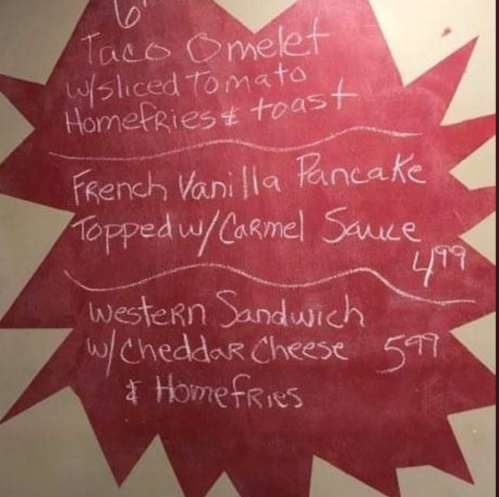 Taco Omelet
w/sliced Tomato
Homefries & toast
French Vanilla Pancake
Topped w/ Carmel Sauce
4.99
Western Sandwich
w/ Cheddar Cheese 5.99
& Homefries